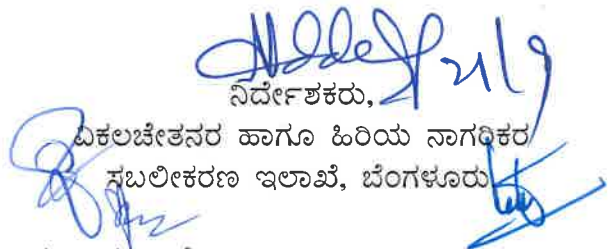 21/9
ನಿರ್ದೇಶಕರು,
ವಿಕಲಚೇತನರ ಹಾಗೂ ಹಿರಿಯ ನಾಗರಿಕರ
ಸಬಲೀಕರಣ ಇಲಾಖೆ, ಬೆಂಗಳೂರು